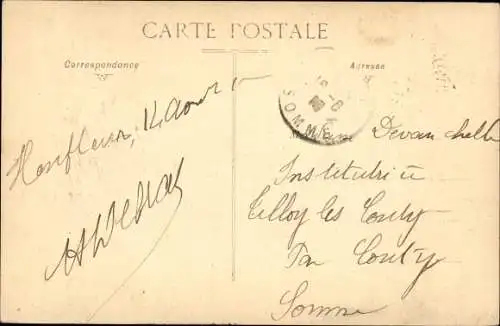 CARTE POSTALE
Correspondance
Adresse
Honfleur, 12 Août
SOMME
Devauchelle
Institutrice
Tilloy les Conty
Par Conty
Somme